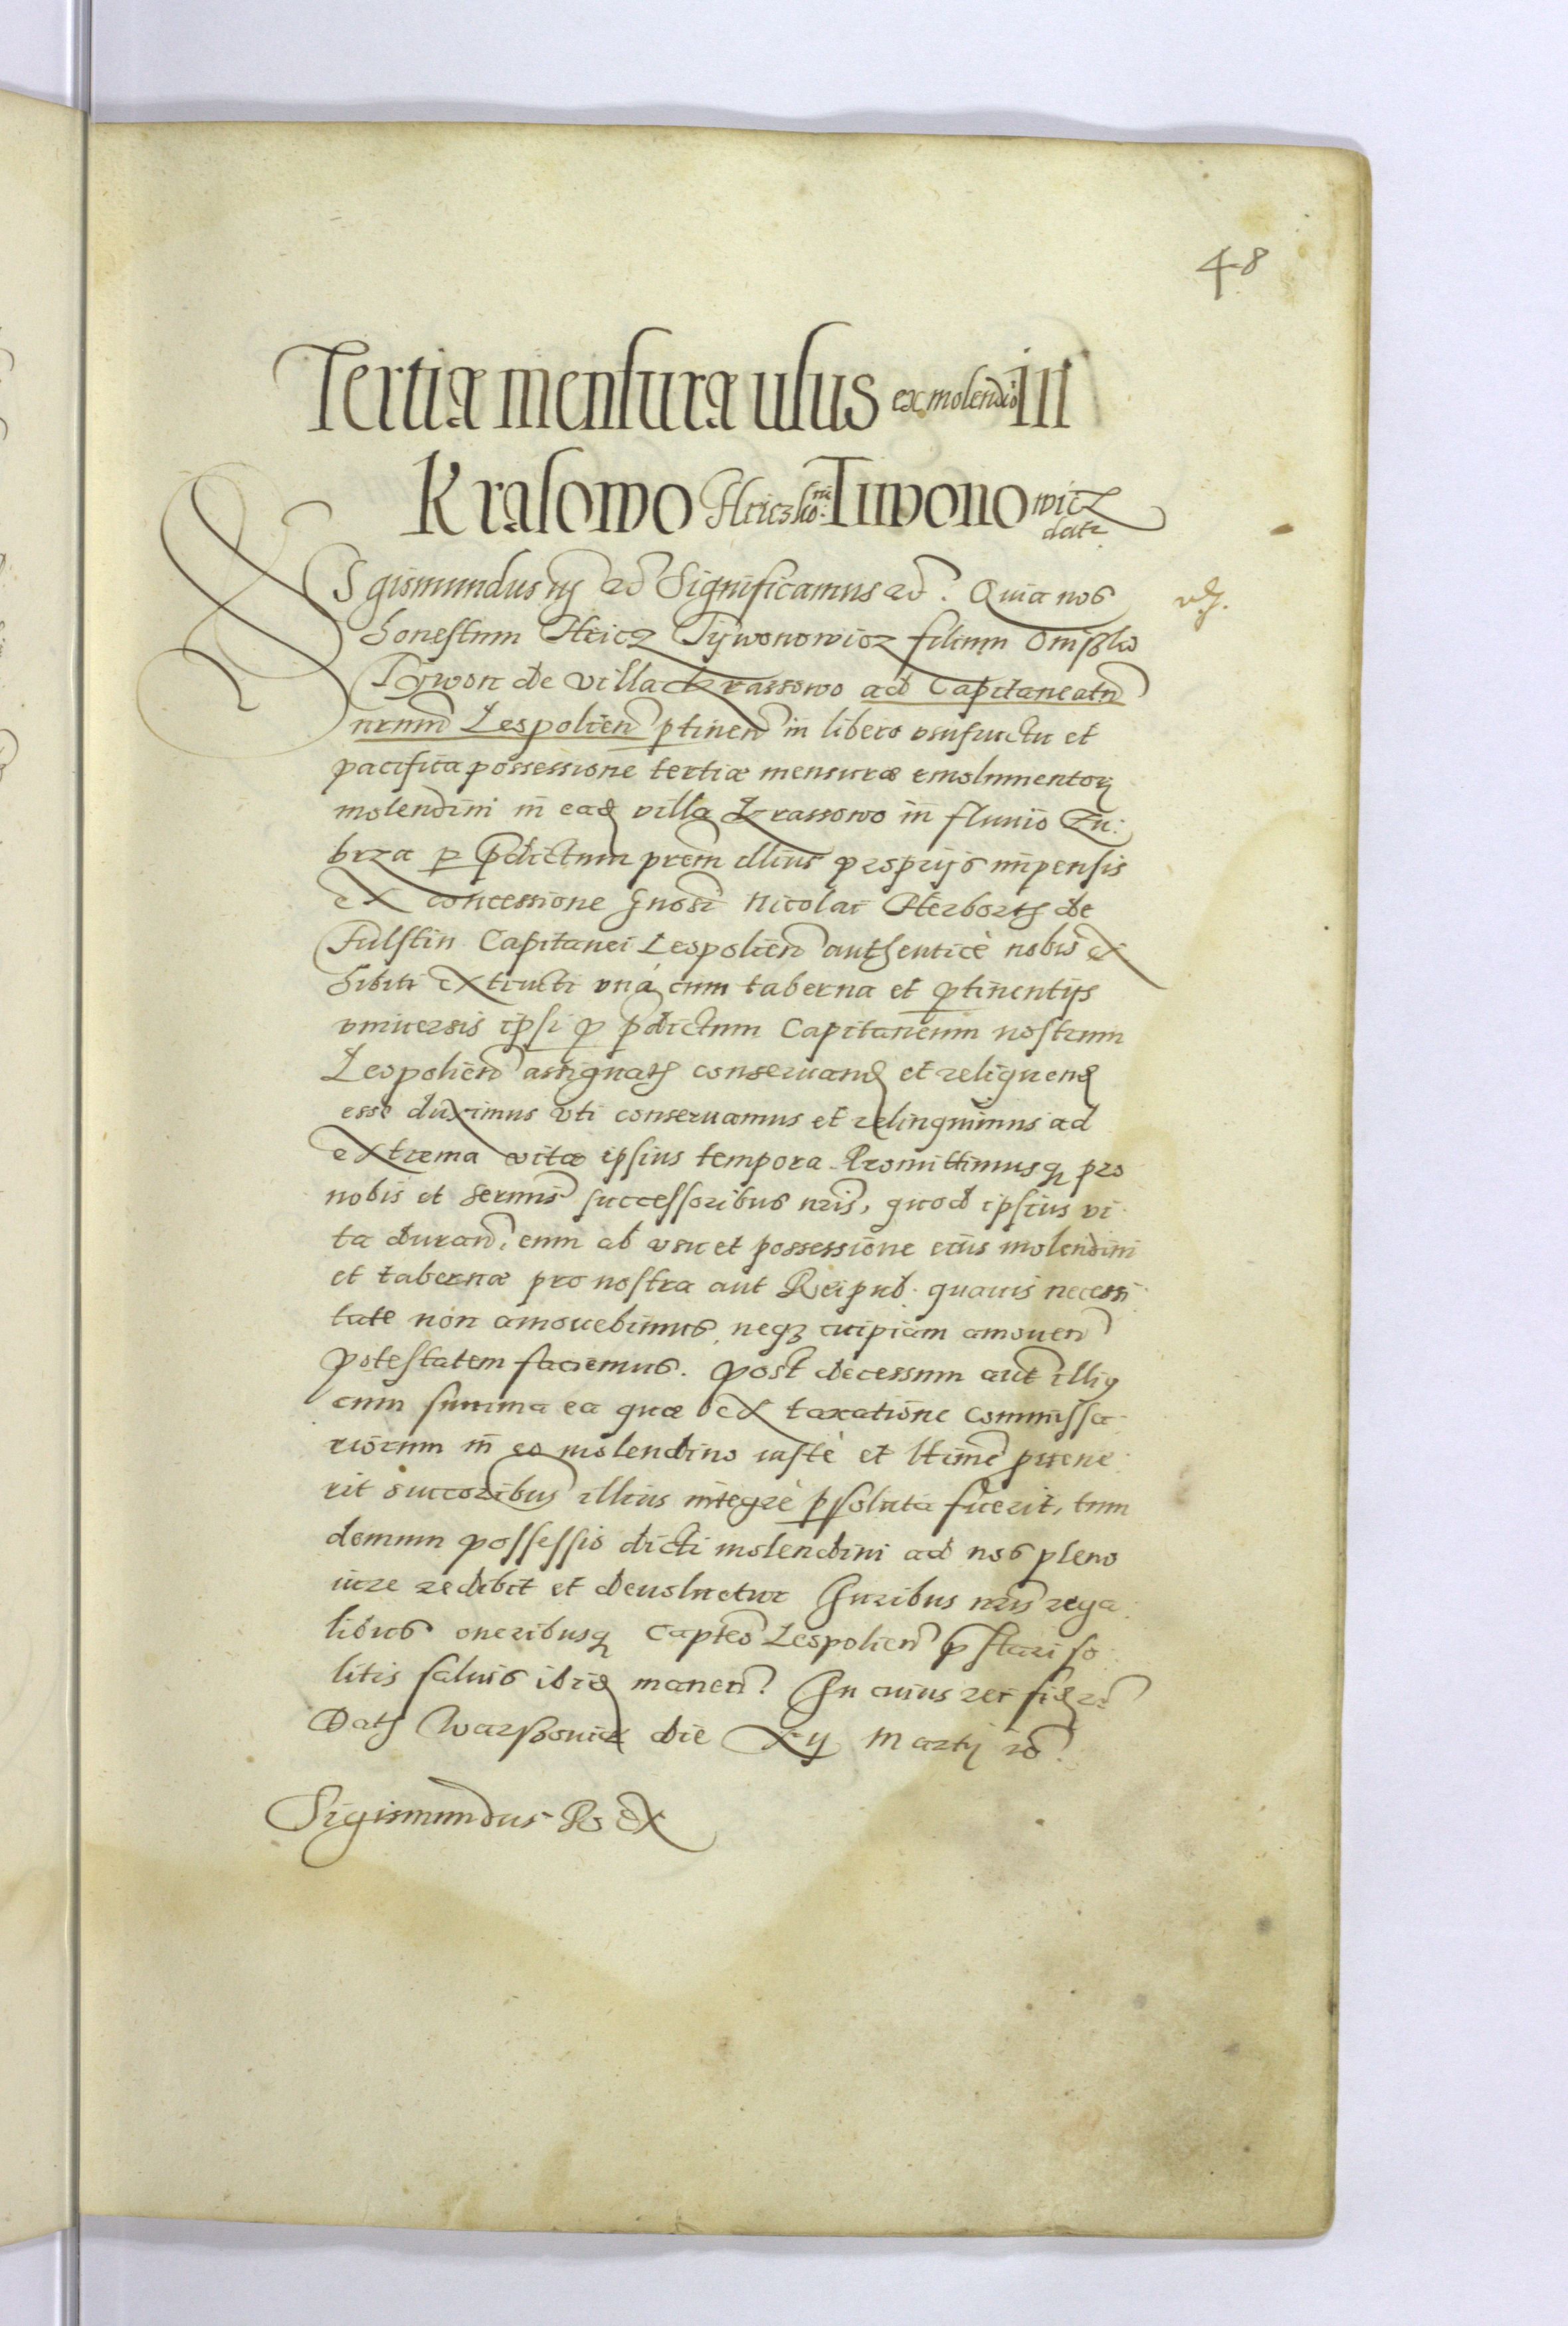 48
Tertiæ mensuræ usus ex molendio in
Krasowo Hriczkoni Tiwonowicz
datr
Sigismundus iij etc Significamus etc. Quia nos
honestum Hricz Tywonowicz filium Onisko
Tywon de villa Krassowo ad Capitaneatū
nrum Leopolien ptinen in libero vsufructu et
pacifica possessione tertiæ mensuræ emolumentor
molendini in ead villa Krassowo in fluuio Zu:
brza p pdictum prem illius proprijs impensis
ex concessione gnosi Nicolai Herborth de
Fulstin Capitanei Leopolien authenticè nobis ex
hibiti extructi vná cum taberna et ptinentijs
vniuersis ipsi p pdictum Capitaneum nostrum
Leopolien assignath conseruand et relinquend
esse duximus vti conseruamus et relinquimus ad
extrema vitæ ipsius tempora. Promittimusq pro
nobis et sermis successoribus nris, quod ipsius vi
ta duran, eum ab vsu et possessione eius molendini
et tabernæ pro nostra aut Reipub. quauis necessi
tate non amouebimus, neq cuipiam amouen
potestatem faciemus. Post decessum aut illiq
cum summa ea quæ ex taxatione commissa
riorum in eo molendino iustè et ltime puene
rit succoribus illius integrè psoluta fuerit, tum
demum possessio dicti molendini ad nos pleno
iure redibit et deuoluetur Juribus nris rega
libus oneribusq Capteo Leopolien pstari so
litis saluis ibid manen. In cuius rei fid etc
Dath Warssouiæ die XII Martij etc.
Sigismundus Rex